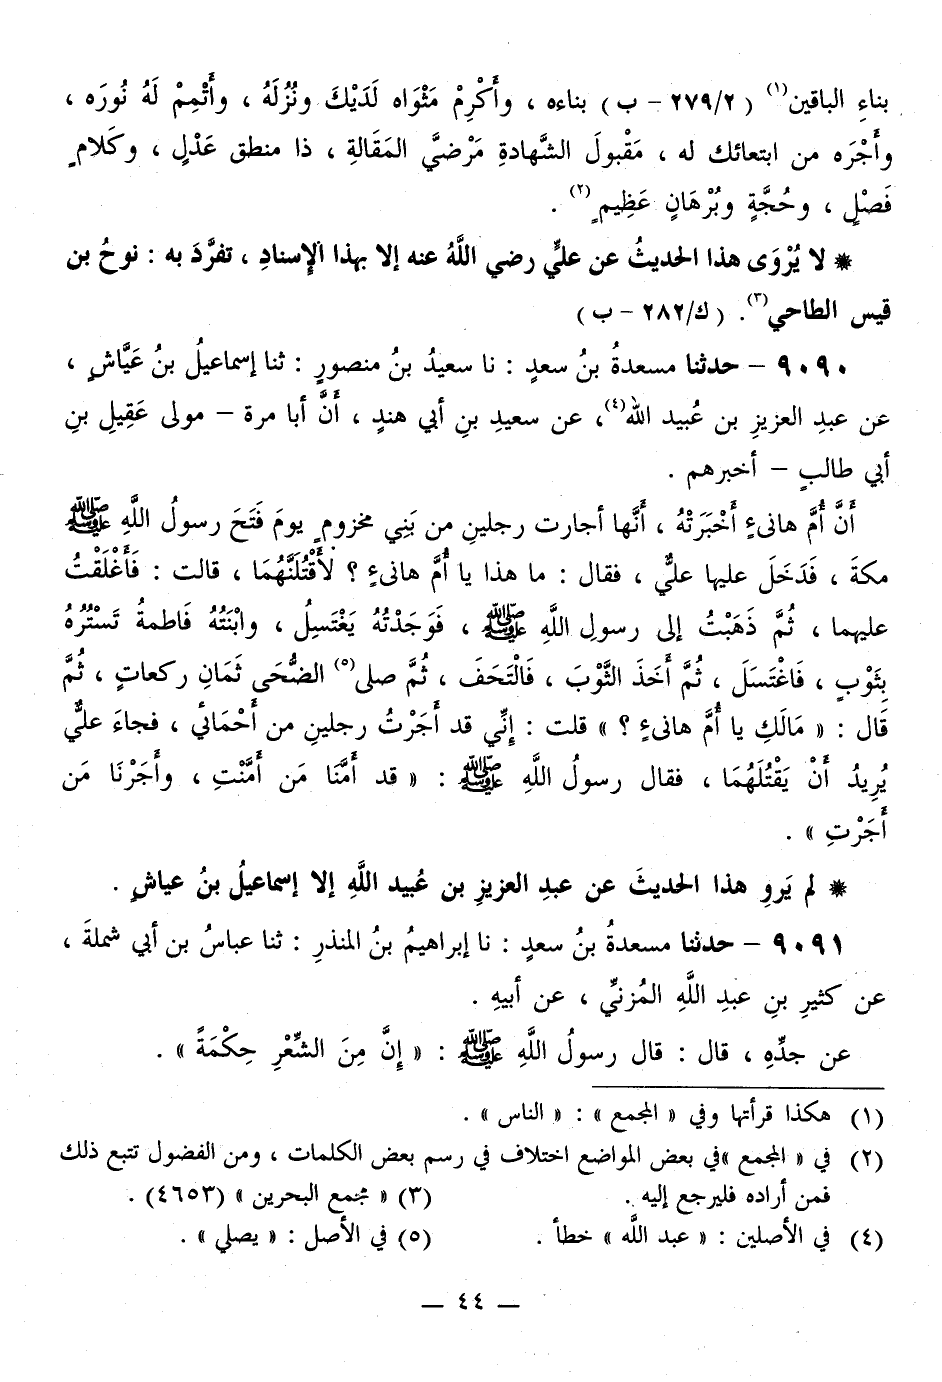 بناءِ الباقين(١) ( ٢٧٩/٢ – ب ) بناءه ، وأَكْرِمْ مَثْوَاه لَدَيْكَ ونُزُلَهُ ، وأَتْمِمْ لَهُ نُورَه ،
وأَجْرَه من ابتعائك له ، مَقْبولَ الشَّهادةِ مَرْضيَّ المَقَالةِ ، ذا منطق عَدْلٍ ، وكَلامٍ
فَصْلٍ ، وحُجَّةٍ وبُرْهَانٍ عَظِيمٍ(٢) .
* لا يُرْوَى هذا الحديثُ عن عليٍّ رضي اللَّهُ عنه إلا بهذا الإسنادِ ، تفرَّدَ به : نوحُ بن
قيس الطاحي(٣). ( ك/٢٨٢ – ب )
٩٠٩٠ – حدثنا مسعدةُ بنُ سعدٍ : نا سعيدُ بنُ منصورٍ : ثنا إسماعيلُ بنُ عَيَّاشٍ ،
عن عبدِ العزيزِ بن عُبيد الله(٤)، عن سعيدِ بنِ أبي هندٍ ، أَنَّ أبا مرة – مولى عَقِيلِ بنِ
أبي طالبٍ – أخبرهم .
أَنَّ أُمَّ هانىءٍ أَخْبَرَتْهُ ، أَنَّها أجارت رجلينِ من بَنِي مخزومٍ يومَ فَتَحَ رسولُ اللَّهِ ﷺ
مكةَ ، فَدَخَلَ عليها عليٌّ ، فقال : ما هذا يا أُمَّ هانىءٍ ؟ لأَقْتُلَنَّهُمَا ، قالت : فَأَغْلَقْتُ
عليهما ، ثُمَّ ذَهَبْتُ إلى رسولِ اللَّهِ ﷺ ، فَوَجَدْتُهُ يَغْتَسِلُ ، وابْنَتُهُ فَاطمةُ تَسْتُرُهُ
بِثَوْبٍ ، فَاغْتَسَلَ ، ثُمَّ أَخَذَ الثَّوْبَ ، فَالْتَحَفَ ، ثُمَّ صلى(٥) الضُّحَى ثَمَانِ ركعاتٍ ، ثُمَّ
قَال : « مَالَكِ يا أُمَّ هانىءٍ ؟ » قلت : إِنِّي قد أَجَرْتُ رجلينِ من أَحْمَائي ، فجاءَ عليٌّ
يُرِيدُ أَنْ يَقْتُلَهُمَا ، فقال رسولُ اللَّهِ ﷺ : « قد أَمَّنَا مَن أَمَّنْتِ ، وأَجَرْنَا مَن
أَجَرْتِ » .
* لم يَروِ هذا الحديثَ عن عبدِ العزيزِ بن عُبيد اللَّهِ إلا إسماعيلُ بنُ عياشٍ .
٩٠٩١ – حدثنا مسعدةُ بنُ سعدٍ : نا إبراهيمُ بنُ المنذرِ : ثنا عباسُ بن أبي شملةَ ،
عن كثيرِ بنِ عبدِ اللَّهِ المُزنيِّ ، عن أبيهِ .
عن جدِّهِ ، قال : قال رسولُ اللَّهِ ﷺ : « إِنَّ مِنَ الشِّعْرِ حِكْمَةً » .
(١) هكذا قرأتها وفي « المجمع » : « الناس » .
(٢) في « المجمع »في بعض المواضع اختلاف في رسم بعض الكلمات ، ومن الفضول تتبع ذلك
فمن أراده فليرجع إليه . (٣) « مجمع البحرين » (٤٦٥٣) .
(٤) في الأصلين : « عبد اللَّه » خطأ . (٥) في الأصل : « يصلي » .
— ٤٤ —